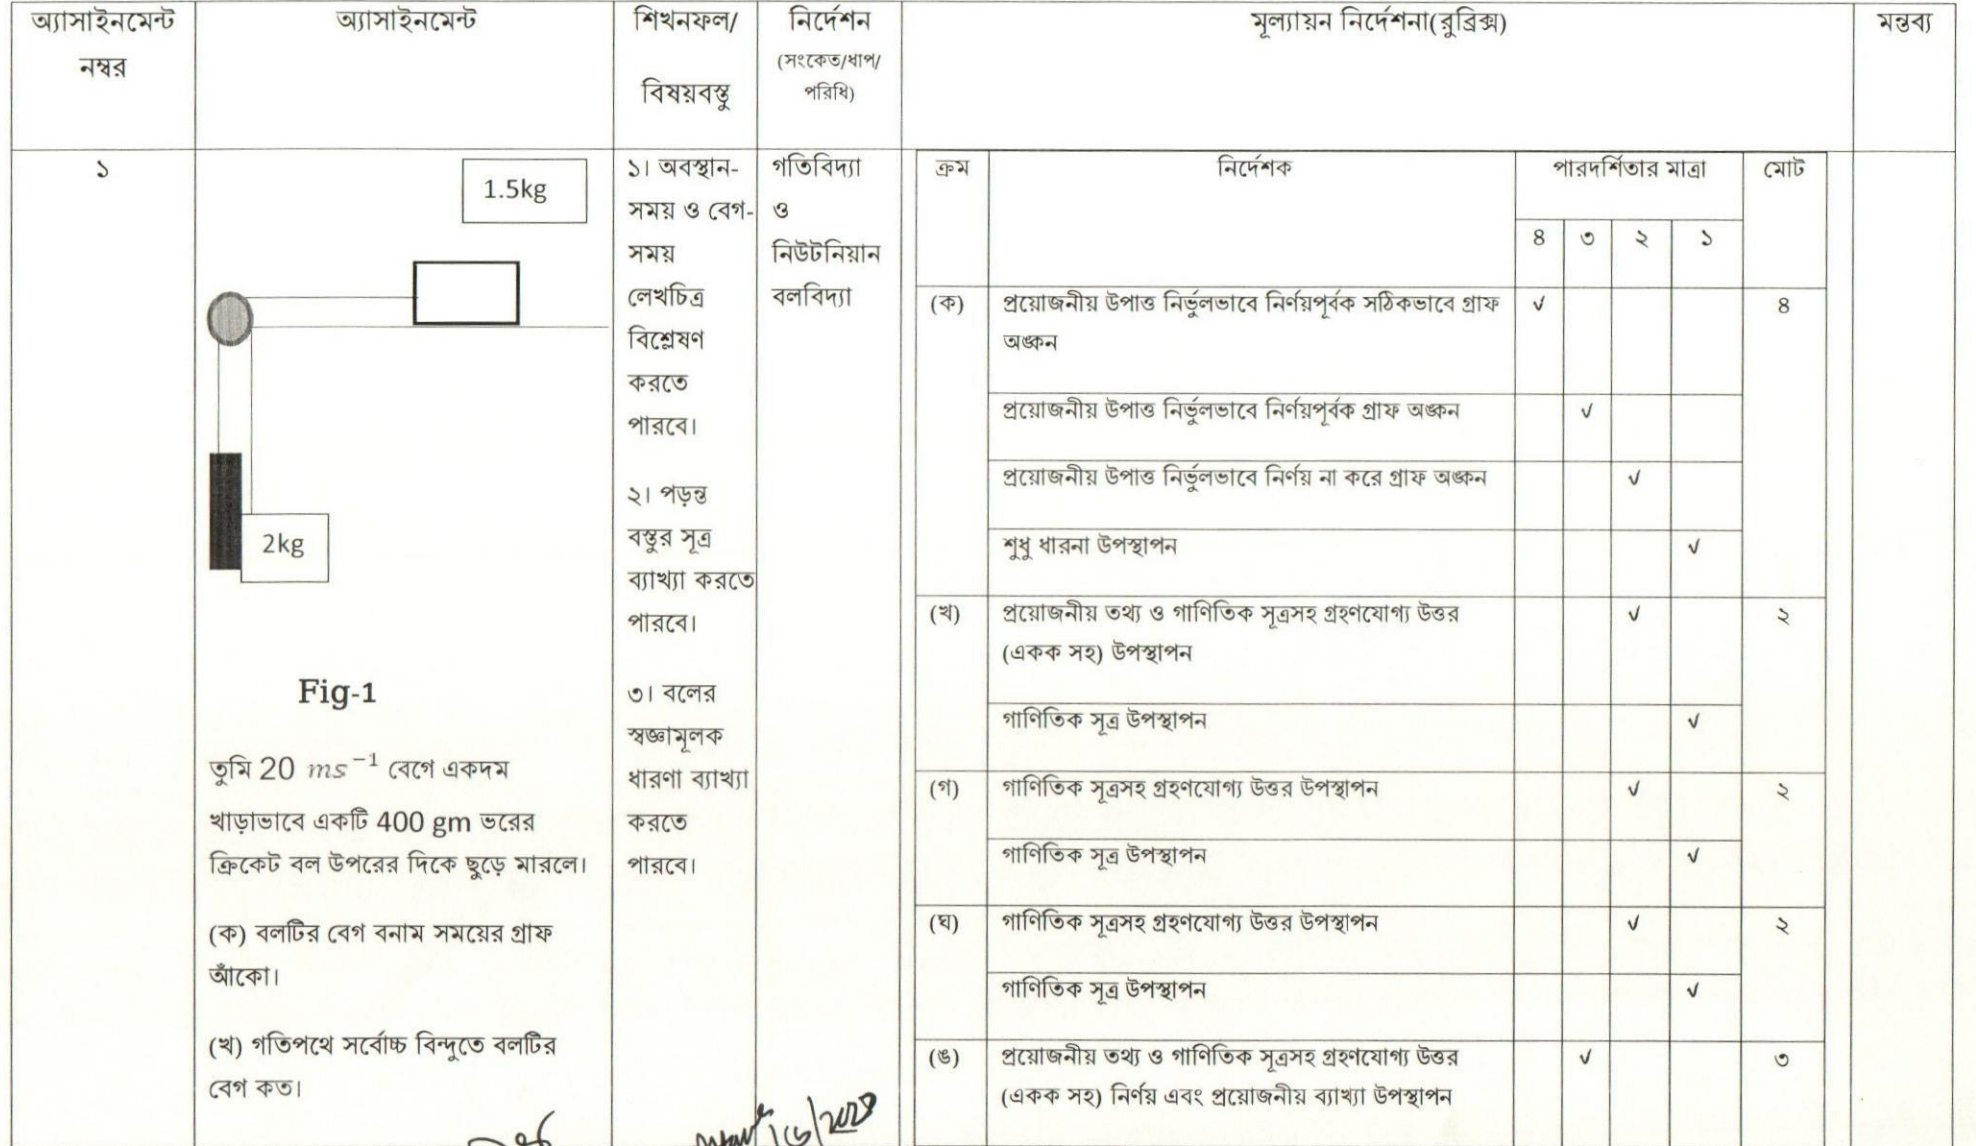 অ্যাসাইনমেন্ট
নম্বর
অ্যাসাইনমেন্ট
শিখনফল/
বিষয়বস্তু
নির্দেশন
(সংকেত/ধাপ/
পরিধি)
মূল্যায়ন নির্দেশনা(রুব্রিক্স)
মন্তব্য
১
1.5kg
2kg
Fig-1
তুমি 20 ms⁻¹ বেগে একদম
খাড়াভাবে একটি 400 gm ভরের
ক্রিকেট বল উপরের দিকে ছুড়ে মারলে।
(ক) বলটির বেগ বনাম সময়ের গ্রাফ
আঁকো।
(খ) গতিপথে সর্বোচ্চ বিন্দুতে বলটির
বেগ কত।
১। অবস্থান-
সময় ও বেগ-
সময়
লেখচিত্র
বিশ্লেষণ
করতে
পারবে।
২। পড়ন্ত
বস্তুর সূত্র
ব্যাখ্যা করতে
পারবে।
৩। বলের
স্বজ্ঞামূলক
ধারণা ব্যাখ্যা
করতে
পারবে।
গতিবিদ্যা
ও
নিউটনিয়ান
বলবিদ্যা
ক্রম
নির্দেশক
পারদর্শিতার মাত্রা
মোট
৪ ৩ ২ ১
(ক) প্রয়োজনীয় উপাত্ত নির্ভুলভাবে নির্ণয়পূর্বক সঠিকভাবে গ্রাফ ✓ ৪
অঙ্কন
প্রয়োজনীয় উপাত্ত নির্ভুলভাবে নির্ণয়পূর্বক গ্রাফ অঙ্কন ✓
প্রয়োজনীয় উপাত্ত নির্ভুলভাবে নির্ণয় না করে গ্রাফ অঙ্কন ✓
শুধু ধারনা উপস্থাপন ✓
(খ) প্রয়োজনীয় তথ্য ও গাণিতিক সূত্রসহ গ্রহণযোগ্য উত্তর ✓ ২
(একক সহ) উপস্থাপন
গাণিতিক সূত্র উপস্থাপন ✓
(গ) গাণিতিক সূত্রসহ গ্রহণযোগ্য উত্তর উপস্থাপন ✓ ২
গাণিতিক সূত্র উপস্থাপন ✓
(ঘ) গাণিতিক সূত্রসহ গ্রহণযোগ্য উত্তর উপস্থাপন ✓ ২
গাণিতিক সূত্র উপস্থাপন ✓
(ঙ) প্রয়োজনীয় তথ্য ও গাণিতিক সূত্রসহ গ্রহণযোগ্য উত্তর ✓ ৩
(একক সহ) নির্ণয় এবং প্রয়োজনীয় ব্যাখ্যা উপস্থাপন